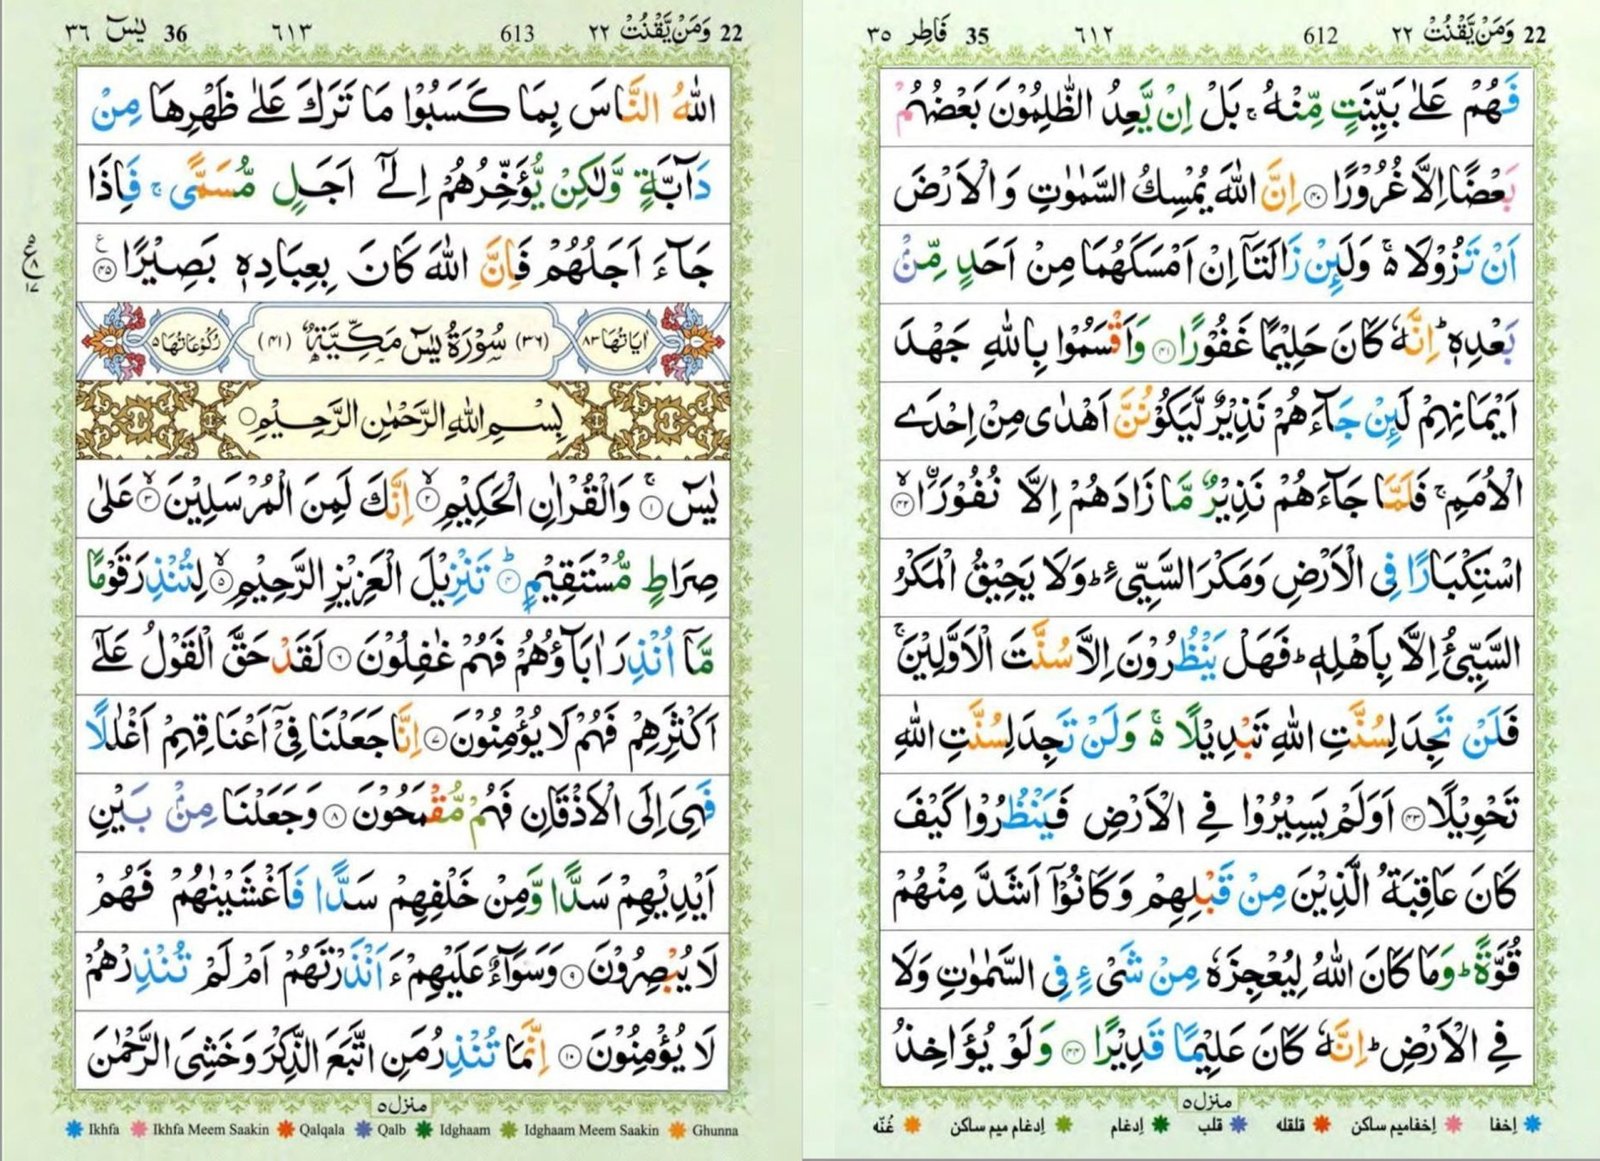 22 وَمَنۡ يَّقۡنُتۡ ٢٢ 612 ٦١٢ 35 فَاطِر ٣٥
فَهُمۡ عَلٰى بَيِّنَتٍ مِّنۡهُ ۚ بَلۡ اِنۡ يَّعِدُ الظّٰلِمُوۡنَ بَعۡضُهُمۡ
بَعۡضًا اِلَّا غُرُوۡرًا ﴿۴۰﴾ اِنَّ اللّٰهَ يُمۡسِكُ السَّمٰوٰتِ وَ الۡاَرۡضَ
اَنۡ تَزُوۡلَا ۚ۬ وَلَئِنۡ زَالَتَاۤ اِنۡ اَمۡسَكَهُمَا مِنۡ اَحَدٍ مِّنۡۢ
بَعۡدِهٖ ؕ اِنَّهٗ كَانَ حَلِيۡمًا غَفُوۡرًا ﴿۴۱﴾ وَاَقۡسَمُوۡا بِاللّٰهِ جَهۡدَ
اَيۡمَانِهِمۡ لَئِنۡ جَآءَهُمۡ نَذِيۡرٌ لَّيَكُوۡنُنَّ اَهۡدٰى مِنۡ اِحۡدَى
الۡاُمَمِ ۚ فَلَمَّا جَآءَهُمۡ نَذِيۡرٌ مَّا زَادَهُمۡ اِلَّا نُفُوۡرًا ۙ﴿۴۲﴾
اسۡتِكۡبَارًا فِى الۡاَرۡضِ وَمَكۡرَ السَّيِّئِ ؕ وَلَا يَحِيۡقُ الۡمَكۡرُ
السَّيِّئُ اِلَّا بِاَهۡلِهٖ ؕ فَهَلۡ يَنۡظُرُوۡنَ اِلَّا سُنَّتَ الۡاَوَّلِيۡنَ ۚ
فَلَنۡ تَجِدَ لِسُنَّتِ اللّٰهِ تَبۡدِيۡلًا ۚ۬ وَلَنۡ تَجِدَ لِسُنَّتِ اللّٰهِ
تَحۡوِيۡلًا ﴿۴۳﴾ اَوَلَمۡ يَسِيۡرُوۡا فِى الۡاَرۡضِ فَيَنۡظُرُوۡا كَيۡفَ
كَانَ عَاقِبَةُ الَّذِيۡنَ مِنۡ قَبۡلِهِمۡ وَكَانُوۡۤا اَشَدَّ مِنۡهُمۡ
قُوَّةً ؕ وَمَا كَانَ اللّٰهُ لِيُعۡجِزَهٗ مِنۡ شَىۡءٍ فِى السَّمٰوٰتِ وَلَا
فِى الۡاَرۡضِ ؕ اِنَّهٗ كَانَ عَلِيۡمًا قَدِيۡرًا ﴿۴۴﴾ وَلَوۡ يُؤَاخِذُ
منزل ٥
اِخفا اِخفامیم ساکن قلقله قلب اِدغام اِدغام میم ساکن غُنّه
22 وَمَنۡ يَّقۡنُتۡ ٢٢ 613 ٦١٣ 36 يٰسٓ ٣٦
اللّٰهُ النَّاسَ بِمَا كَسَبُوۡا مَا تَرَكَ عَلٰى ظَهۡرِهَا مِنۡ
دَآبَّةٍ وَّلٰكِنۡ يُّؤَخِّرُهُمۡ اِلٰٓى اَجَلٍ مُّسَمًّى ۚ فَاِذَا
جَآءَ اَجَلُهُمۡ فَاِنَّ اللّٰهَ كَانَ بِعِبَادِهٖ بَصِيۡرًا ﴿۴۵﴾
ع ٨ ١٧
اٰيَاتُهَا ٨٣ (٣٦) سُوۡرَةُ يٰسٓ مَكِّيَّةٌ (٤١) رُكُوۡعَاتُهَا ٥
بِسۡمِ اللّٰهِ الرَّحۡمٰنِ الرَّحِيۡمِ
يٰسٓ ۚ﴿۱﴾ وَالۡقُرۡاٰنِ الۡحَكِيۡمِ ۙ﴿۲﴾ اِنَّكَ لَمِنَ الۡمُرۡسَلِيۡنَ ۙ﴿۳﴾ عَلٰى
صِرَاطٍ مُّسۡتَقِيۡمٍ ؕ﴿۴﴾ تَنۡزِيۡلَ الۡعَزِيۡزِ الرَّحِيۡمِ ۙ﴿۵﴾ لِتُنۡذِرَ قَوۡمًا
مَّاۤ اُنۡذِرَ اٰبَآؤُهُمۡ فَهُمۡ غٰفِلُوۡنَ ﴿۶﴾ لَقَدۡ حَقَّ الۡقَوۡلُ عَلٰٓى
اَكۡثَرِهِمۡ فَهُمۡ لَا يُؤۡمِنُوۡنَ ﴿۷﴾ اِنَّا جَعَلۡنَا فِىۡۤ اَعۡنَاقِهِمۡ اَغۡلٰلًا
فَهِىَ اِلَى الۡاَذۡقَانِ فَهُمۡ مُّقۡمَحُوۡنَ ﴿۸﴾ وَجَعَلۡنَا مِنۡۢ بَيۡنِ
اَيۡدِيۡهِمۡ سَدًّا وَّمِنۡ خَلۡفِهِمۡ سَدًّا فَاَغۡشَيۡنٰهُمۡ فَهُمۡ
لَا يُبۡصِرُوۡنَ ﴿۹﴾ وَسَوَآءٌ عَلَيۡهِمۡ ءَاَنۡذَرۡتَهُمۡ اَمۡ لَمۡ تُنۡذِرۡهُمۡ
لَا يُؤۡمِنُوۡنَ ﴿۱۰﴾ اِنَّمَا تُنۡذِرُ مَنِ اتَّبَعَ الذِّكۡرَ وَخَشِىَ الرَّحۡمٰنَ
منزل ٥
Ikhfa Ikhfa Meem Saakin Qalqala Qalb Idghaam Idghaam Meem Saakin Ghunna